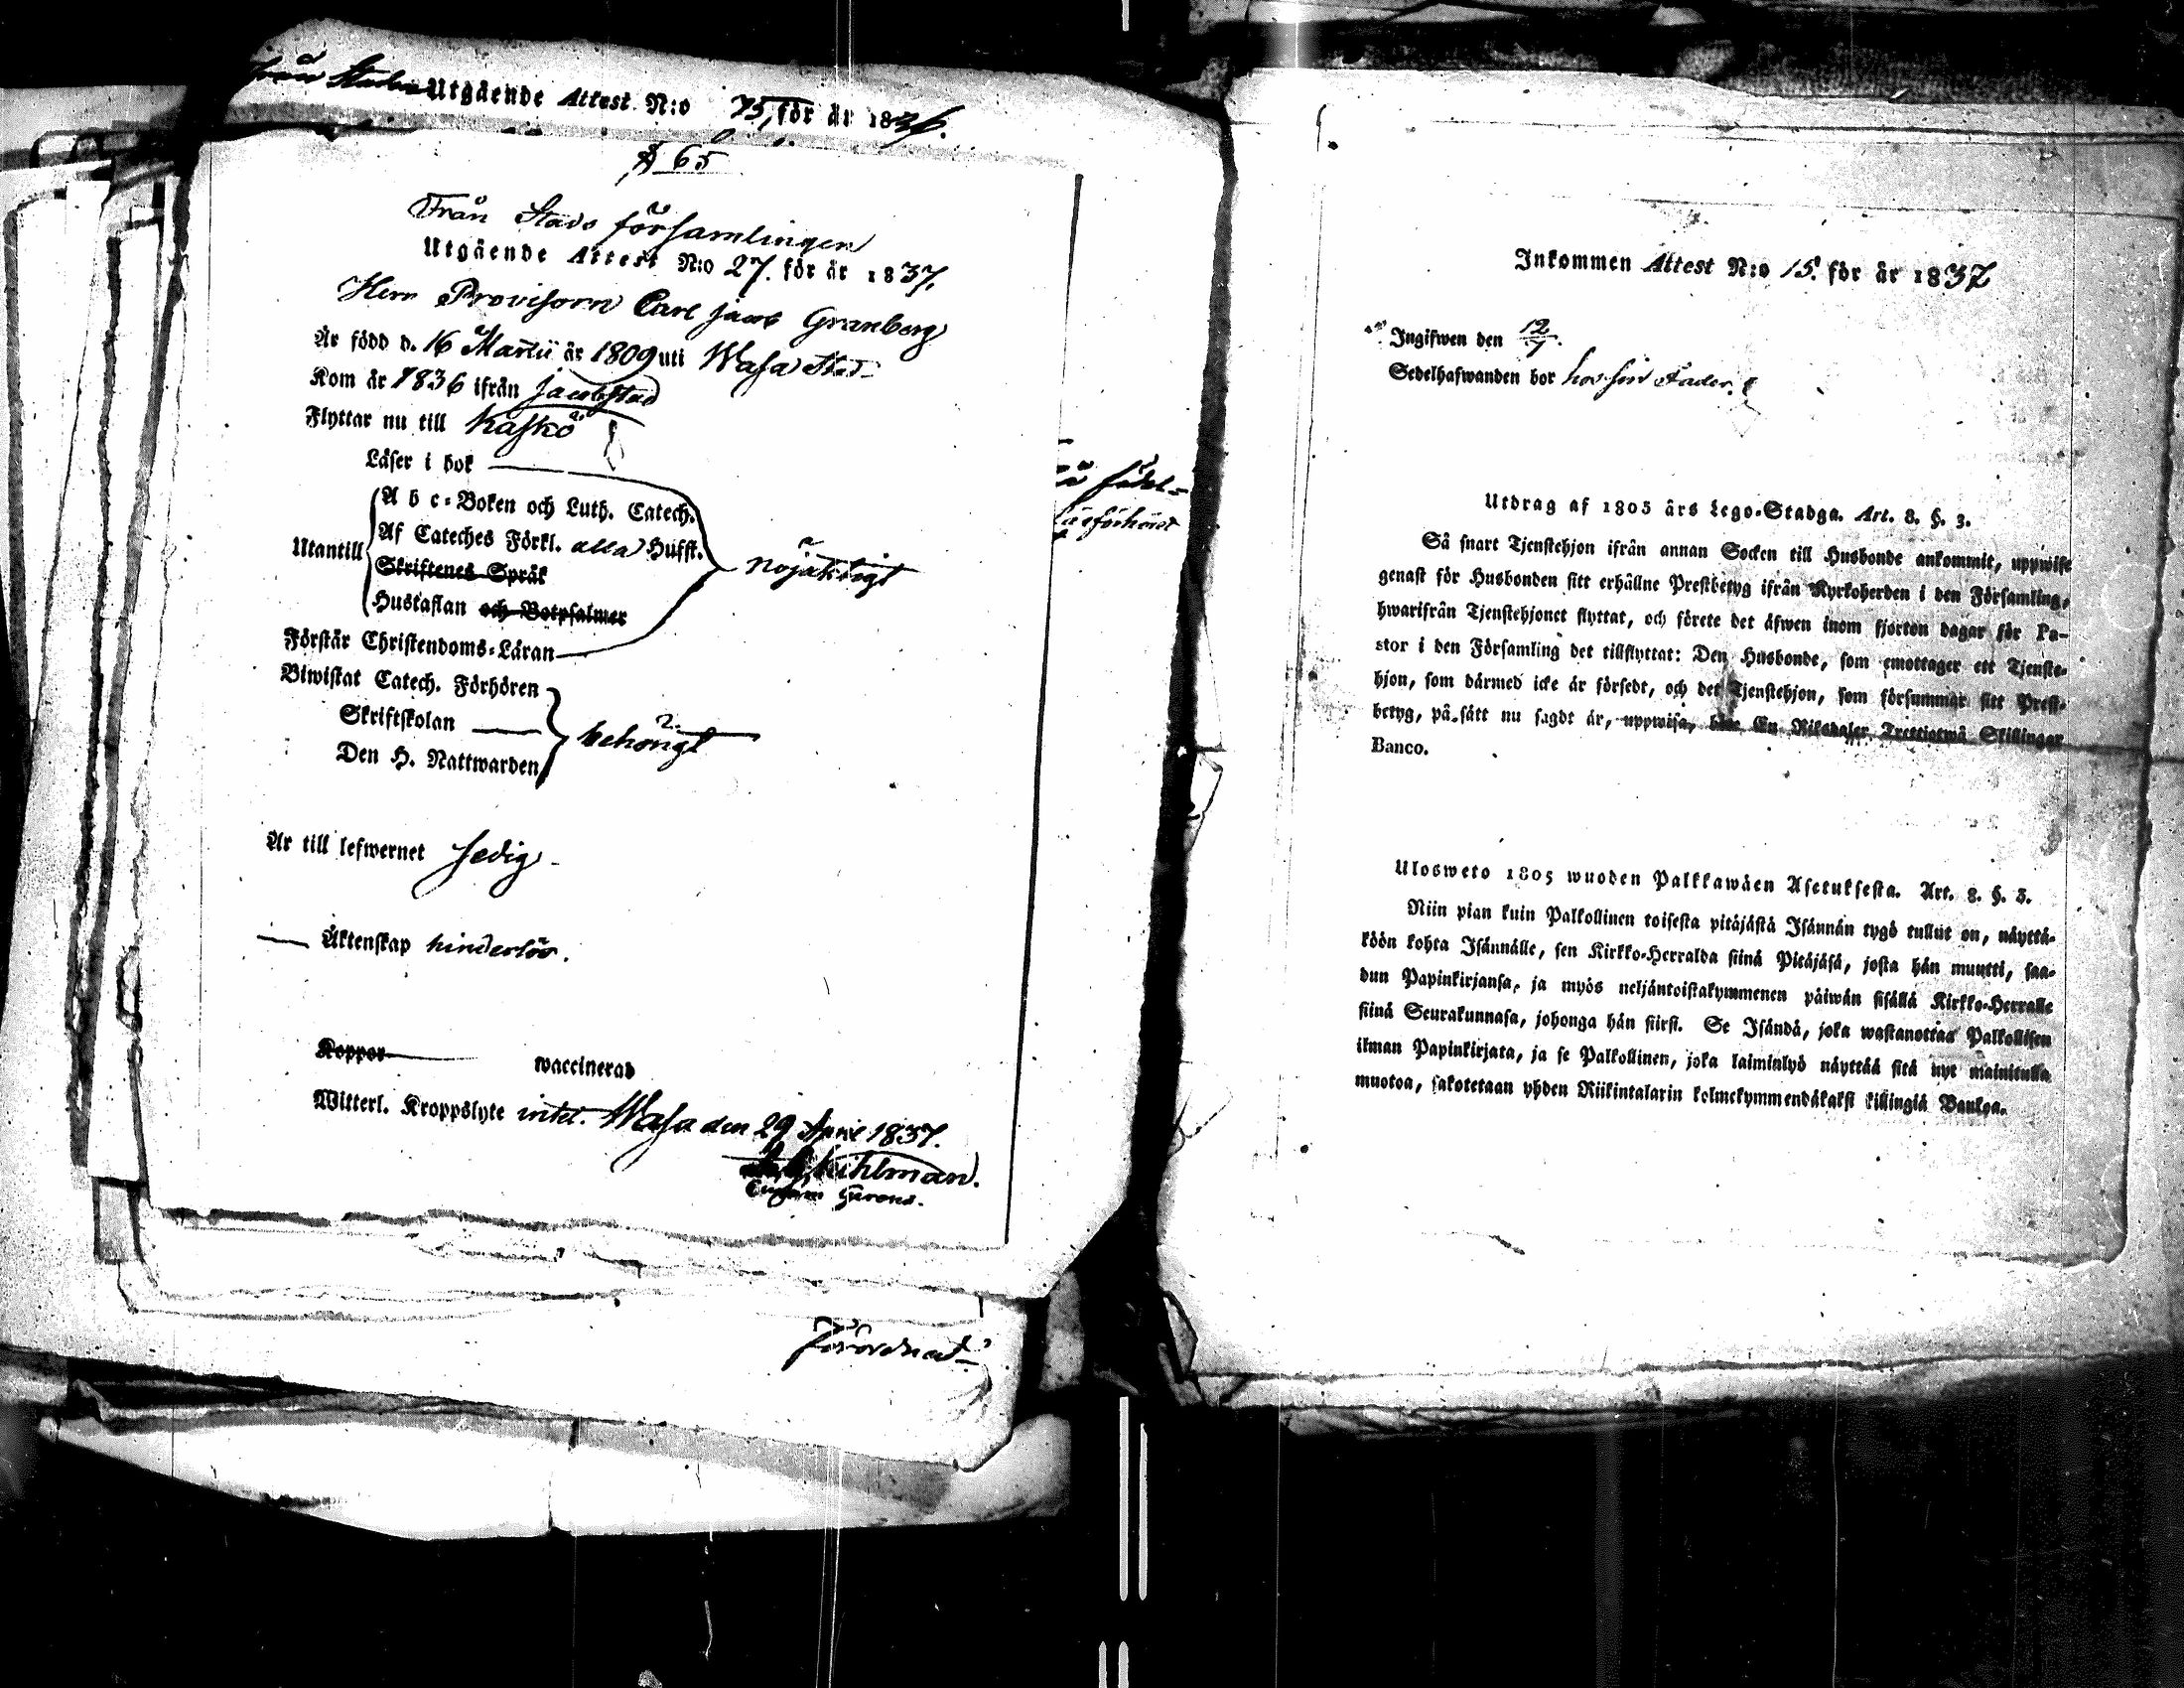 från Staden Utgående Attest N:o 75, för år 1836.
№ 65
Från Stads församlingen
Utgående Attest N:o 27. för år 1837.
Herr Provisorn Carl Jacob Granberg
Är född d. 16 Martii år 1809 uti Wasa Stad
Kom år 1836 ifrån Jacobstad
Flyttar nu till Kaskö
Läser i bok
Utantill
A b c-Boken och Luth. Catech.
Af Cateches Förkl. alla Hufst.
Skriftenes Språk
Hustaflan och Botpsalmer
nöjaktigt
Förstår Christendoms-Läran
Biwistat Catech. Förhören
Skriftskolan
Den H. Nattwarden
behörigt
Är till lefwernet sedig
Äktenskap hinderlös.
Koppor waccinerad
Witterl. Kroppslyte intet. Wasa den 29 April 1837.
Kihlman.
förordnad
Inkommen Attest N:o 15. för år 1837
Ingifwen den 12/7.
Sedelhafwanden bor hos sin Fader.
Utdrag af 1805 års Lego-Stadga. Art. 8. §. 3.
Så snart Tjenstehjon ifrån annan Socken till Husbonde ankommit, uppwise
genast för Husbonden sitt erhållne Prestbetyg ifrån Kyrkoherden i den Församling,
hwarifrån Tjenstehjonet flyttat, och förete det äfwen inom fjorton dagar för Pa-
stor i den Församling det tillflyttat: Den Husbonde, som emottager ett Tjenste-
hjon, som därmed icke är försedt, och det Tjenstehjon, som försummar sitt Prest-
betyg, på sätt nu sagdt är, uppwisa, böte En Riksdaler Trettiotwå Skillingar
Banco.
Ulosweto 1805 wuoden Palkkawäen Asetuksesta. Art. 8. §. 3.
Niin pian kuin Palkollinen toisesta pitäjästä Isännän tygö tullut on, näyttä-
köön kohta Isännälle, sen Kirkko-Herralda siinä Pitäjäsä, josta hän muutti, saa-
dun Papinkirjansa, ja myös neljäntoistakymmenen päiwän sisällä Kirkko-Herralle
siinä Seurakunnasa, johonga hän siirsi. Se Isändä, joka wastanottaa Palkollisen
ilman Papinkirjata, ja se Palkollinen, joka laiminlyö näyttää sitä nyt mainitulla
muotoa, sakotetaan yhden Riikintalarin kolmekymmendäkaksi killingiä Bankoa.